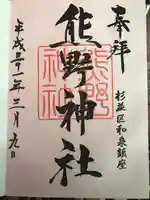 奉拝
杉並区和泉鎮座
熊野神社
熊野神社
平成卅一年三月九日